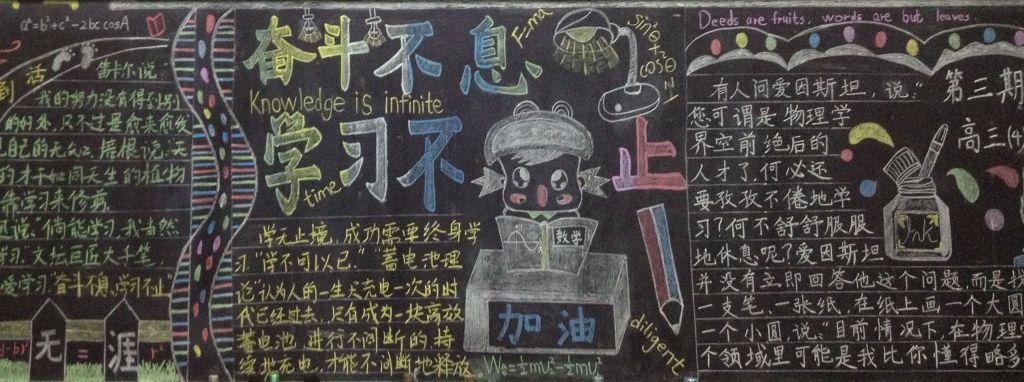 a²=b²+c²-2bc cosA
活
笛卡尔说:
到
我的努力没有得到别
的好处,只不过是愈来愈发
自己的无知,培根说:天
的才干如同天生的植物
靠学习来修剪
说:倘能学习,我当然
学习.文坛巨匠大手笔,
爱学习."奋斗不息,学习不止
无
=
涯
奋斗不息
Knowledge is infinite
学习不止
time
F=ma
sin²x+cos²x=1
数学
加油
diligent
学无止境,成功需要终身学
习"学不可以已."蓄电池理
论"认为人的一生只充电一次的时
代已经过去,只有成为一块高效
蓄电池,进行不间断的持
续地充电,才能不间断地释放.
W合=½mv₂²-½mv₁²
Deeds are fruits, words are but leaves
第三期
高三(4)
Ink
有人问爱因斯坦,说:"
您可谓是物理学
界空前绝后的
人才了,何必还
要孜孜不倦地学
习?何不舒舒服服
地休息呢?爱因斯坦
并没有立即回答他这个问题,而是找
一支笔、一张纸,在纸上画一个大圆
一个小圆,说:"目前情况下,在物理
个领域里可能是我比你懂得略多